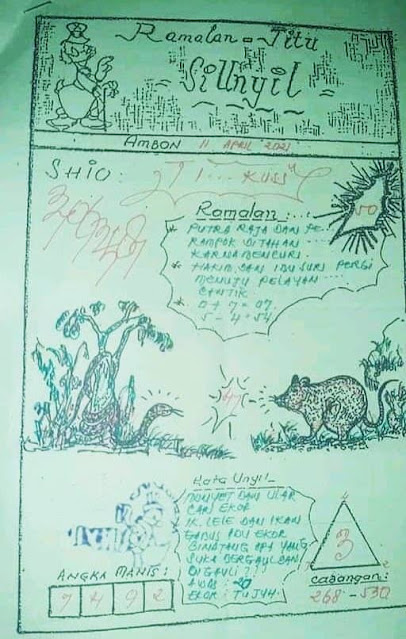 Ramalan - Jitu
SiUnyil
AMBON 11 APRIL 2021
SHIO: TI... KUSS
50
Ramalan:
* PUTRA RAJA DAN PE-
RAMPOK DITAHAN
KARNA MENCURI
* HAKIM DAN IBU SURI PERGI
MENUJU PELAYAN
CANTIK
* 0 + 7 = 07
5 - 4 = 54
Kata Unyil
MONYET DAN ULAR
CARI EKOR
IK. LELE DAN IKAN
GABUS ADU EKOR
BINATANG APA YANG
SUKA BERGAULDAN
DIGAULI ? ! !
EKOR : TUJUH
3
ANGKA MANIS:
7 4 9 2
Cadangan:
268 - 530